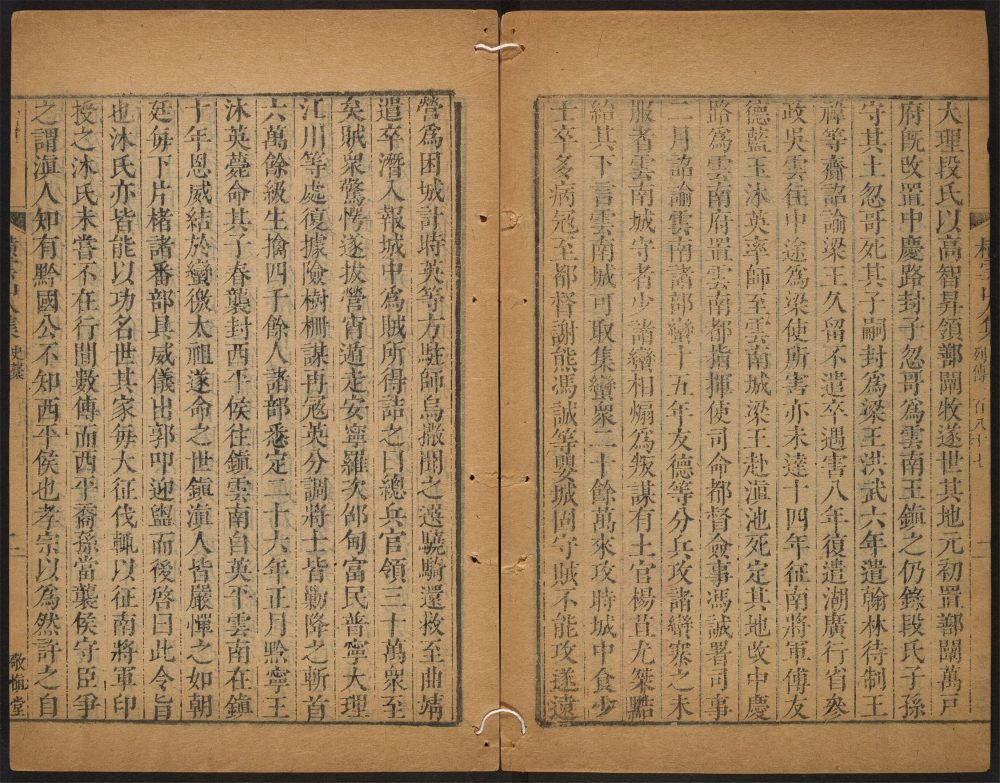 大理段氏以高智昇領鄯闡牧遂世其地元初置鄯闡萬戸
府旣改置中慶路封子忽哥爲雲南王鎮之仍錄段氏子孫
守其土忽哥死其子嗣封爲梁王洪武六年遣翰林待制王
禕等齎詔諭梁王久留不遣卒遇害八年復遣湖廣行省叅
政吳雲往中途爲梁使所害亦未達十四年征南將軍傅友
德藍玉沐英率師至雲南城梁王赴滇池死定其地改中慶
路爲雲南府置雲南都指揮使司命都督僉事馮誠署司事
二月詔諭雲南諸部蠻十五年友德等分兵攻諸蠻寨之未
服者雲南城守者少諸蠻相煽爲叛謀有土官楊苴尤桀黠
紿其下言雲南城可取集蠻衆二十餘萬來攻時城中食少
士卒多病冦至都督謝熊馮誠等嬰城固守賊不能攻遂遠
列傳 一百八十七
營爲困城計時英等方駐師烏撒聞之遽驍騎還救至曲靖
遣卒潛入報城中爲賊所得詰之曰總兵官領三十萬衆至
矣賊衆驚愕遂拔營宵遁走安寧羅次邵甸富民普寧大理
江川等處復據險樹柵謀再冦英分調將士皆勦降之斬首
六萬餘級生擒四千餘人諸部悉定二十六年正月黔寧王
沐英薨命其子春襲封西平侯往鎮雲南自英平雲南在鎮
十年恩威結於蠻徼太祖遂命之世鎮滇人皆嚴憚之如朝
廷每下片楮諸番部具威儀出郭叩迎盥而後啓曰此令旨
也沐氏亦皆能以功名世其家每大征伐輒以征南將軍印
授之沐氏未嘗不在行間數傳而西平裔孫當襲侯守臣爭
之謂滇人知有黔國公不知西平侯也孝宗以爲然許之自
史藁
二
敬愼堂